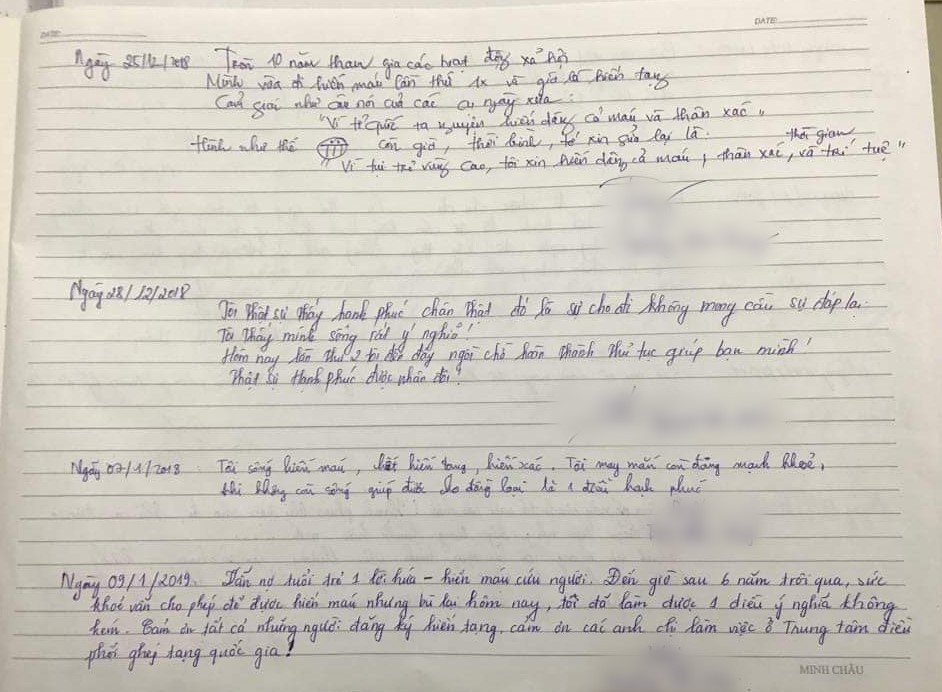 DATE:
DATE:
Ngày 25/12/2018 Tròn 10 năm tham gia các hoạt động xã hội
Mình vừa đi hiến máu lần thứ 1x và giờ là hiến tạng
Cảm giác như câu nói của các cụ ngày xưa:
"Vì tổ quốc ta nguyện hiến dâng cả máu và thân xác"
Hình như thế còn giờ, thời bình, tớ xin sửa lại là: thời gian
Vì tụi trẻ vùng cao, tôi xin hiến dâng cả máu, thân xác, và trí tuệ"
Ngày 28/12/2018 Tôi thật sự thấy hạnh phúc chân thật đó là sự cho đi không mong cầu sự đáp lại.
Tôi thấy mình sống rất ý nghĩa!
Hôm nay lần thứ 2 tôi đến đây ngồi chờ hoàn thành thủ tục giúp bạn mình!
Thật sự Hạnh phúc được nhân đôi!
Ngày 07/1/2018 Tôi sống hiến máu, chết hiến tạng, hiến xác. Tôi may mắn còn đang mạnh khoẻ,
khi không còn sống giúp được cho đồng loại là 1 điều hạnh phúc
Ngày 09/1/2019. Vẫn nợ tuổi trẻ 1 lời hứa - hiến máu cứu người. Đến giờ sau 6 năm trôi qua, sức
khoẻ vẫn cho phép để được hiến máu nhưng bù lại hôm nay, tôi đã làm được 1 điều ý nghĩa không
kém. Cảm ơn tất cả những người đăng ký hiến tạng, cảm ơn các anh chị làm việc ở Trung tâm điều
phối ghép tạng quốc gia!
MINH CHÂU